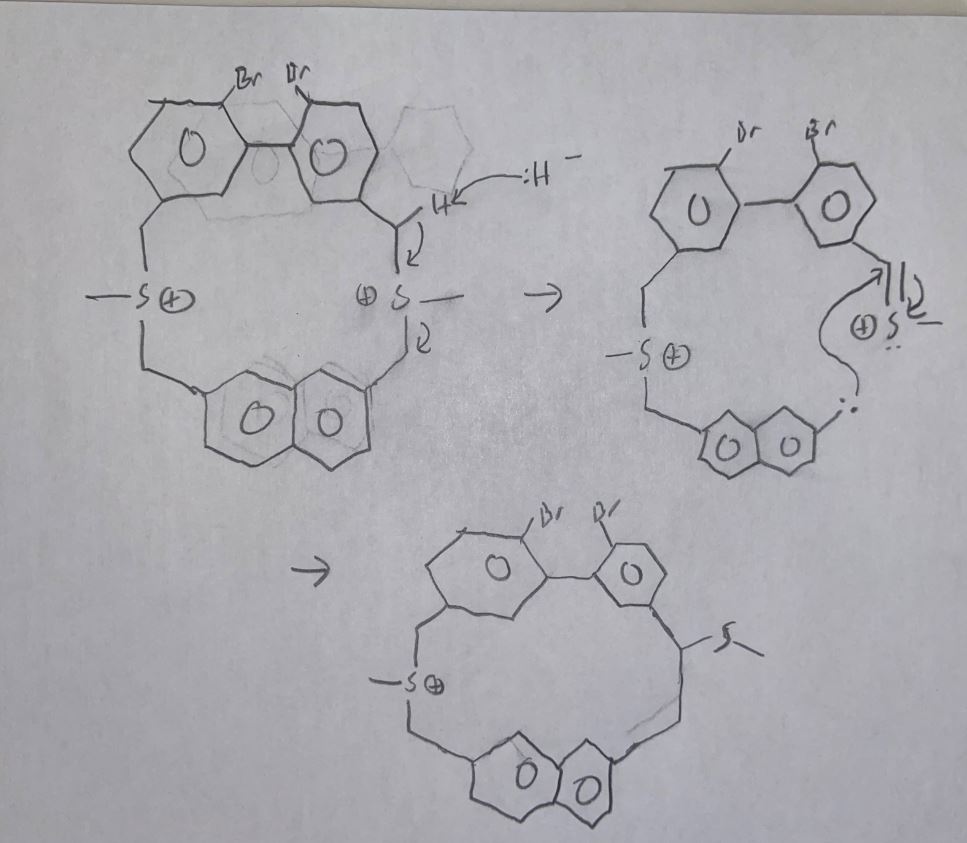 Br Br
H :H⁻
—S⊕ ⊕S—
→
Br Br
—S⊕ ⊕S̤—
:
→
Br Br
S
—S⊕